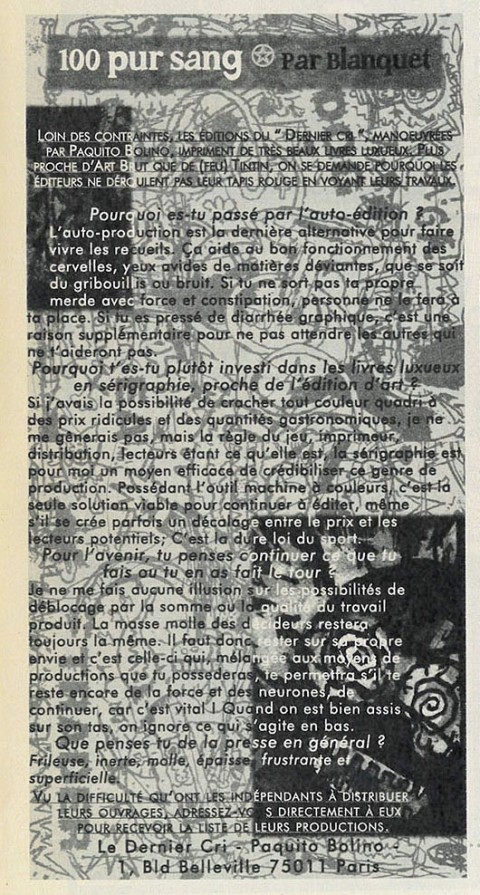 100 pur sang Par Blanquet
LOIN DES CONTRAINTES, LES ÉDITIONS DU " DERNIER CRI ", MANOEUVRÉES
PAR PAQUITO BOLINO, IMPRIMENT DE TRÈS BEAUX LIVRES LUXUEUX. PLUS
PROCHE D'ART BRUT QUE DE (FEU) TINTIN, ON SE DEMANDE POURQUOI LES
ÉDITEURS NE DÉROULENT PAS LEUR TAPIS ROUGE EN VOYANT LEURS TRAVAUX.
Pourquoi es-tu passé par l'auto-édition ?
L'auto-production est la dernière alternative pour faire
vivre les recueils. Ça aide au bon fonctionnement des
cervelles, yeux avides de matières déviantes, que se soit
du gribouillis ou bruit. Si tu ne sort pas ta propre
merde avec force et constipation, personne ne le fera à
ta place. Si tu es pressé de diarrhée graphique, c'est une
raison supplémentaire pour ne pas attendre les autres qui
ne t'aideront pas.
Pourquoi t'es-tu plutôt investi dans les livres luxueux
en sérigraphie, proche de l'édition d'art ?
Si j'avais la possibilité de cracher tout couleur quadri à
des prix ridicules et des quantités gastronomiques, je ne
me gênerais pas, mais la règle du jeu, imprimeur,
distribution, lecteurs étant ce qu'elle est, la sérigraphie est
pour moi un moyen efficace de crédibiliser ce genre de
production. Possédant l'outil machine à couleurs, c'est la
seule solution viable pour continuer à éditer, même
s'il se crée parfois un décalage entre le prix et les
lecteurs potentiels; C'est la dure loi du sport.
Pour l'avenir, tu penses continuer ce que tu
fais ou tu en as fait le tour ?
Je ne me fais aucune illusion sur les possibilités de
déblocage par la somme ou la qualité du travail
produit. La masse molle des décideurs restera
toujours la même. Il faut donc rester sur sa propre
envie et c'est celle-ci qui, mélangée aux moyens de
productions que tu possederas, te permettra s'il te
reste encore de la force et des neurones, de
continuer, car c'est vital ! Quand on est bien assis
sur son tas, on ignore ce qui s'agite en bas.
Que penses tu de la presse en général ?
Frileuse, inerte, molle, épaisse, frustrante et
superficielle.
VU LA DIFFICULTÉ QU'ONT LES INDÉPENDANTS À DISTRIBUER
LEURS OUVRAGES, ADRESSEZ-VOUS DIRECTEMENT À EUX
POUR RECEVOIR LA LISTE DE LEURS PRODUCTIONS.
Le Dernier Cri - Paquito Bolino -
1, Bld Belleville 75011 Paris